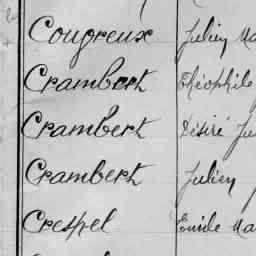 Cougreux Julien Ma
Crambert Théophile
Crambert Désiré Ju
Crambert Julien
Crespel Emile Ma